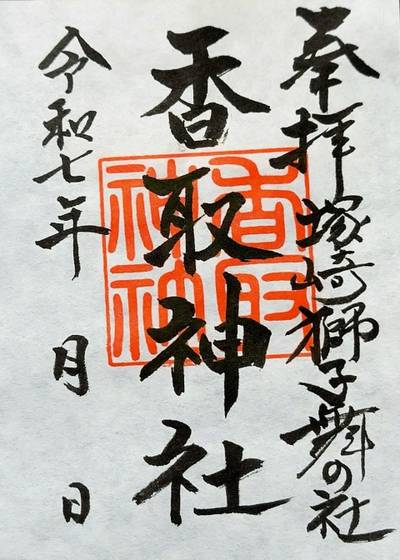 奉拝 塚崎獅子舞の社
香取神社
令和七年 月 日
香取神社